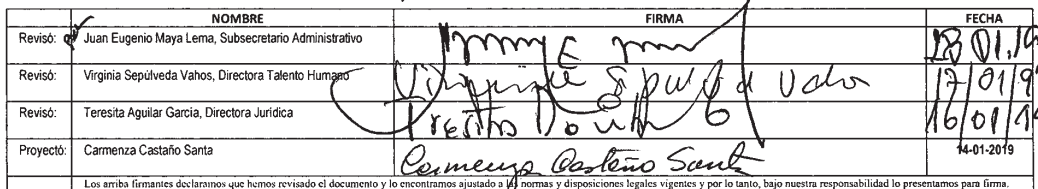 NOMBRE FIRMA FECHA
Revisó: Juan Eugenio Maya Lema, Subsecretario Administrativo 18 01.19
Revisó: Virginia Sepúlveda Vahos, Directora Talento Humano Virginia Sepulveda Vahos 17/01/9
Revisó: Teresita Aguilar Garcia, Directora Jurídica 16/01/19
Proyectó: Carmenza Castaño Santa Carmenza Castaño Santa 14-01-2019
Los arriba firmantes declaramos que hemos revisado el documento y lo encontramos ajustado a las normas y disposiciones legales vigentes y por lo tanto, bajo nuestra responsabilidad lo presentamos para firma.